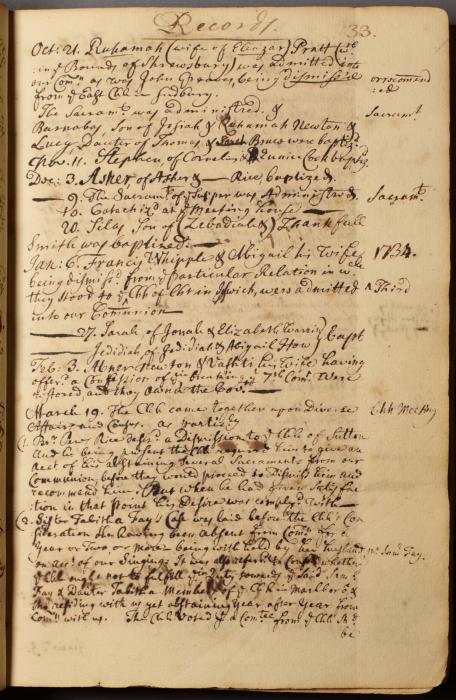 Records. 33.
Oct: 21. Ruhamah (wife of Eliezar) Pratt (
in ye Bounds of Shrewsbury) was admitted into
our Comn as was John Greaves, being dismiss'd
from ye East Chh in Sudbury. orrecomend
:ed
The Sacramt was administred. & Sacramt
Barnabas, Son of Josiah & Ruhamah Newton &
Lucy Dauter of Thomas, & Bruce were baptiz'd
Nov. 11. Stephen, of Cornelius & Eunice Cook baptiz'd
Dec: 3. Asher of Asher & — Rice, baptized.
— 9. The Sacramt of ye Supper was Administred. Sacramt.
— 10. Catechiz'd at ye Meeting house —
20. Silas Son of (Zebadiah &) Thankfull
Smith was baptized. —
Jan: 6. Francis Whipple & Abigail his Wife 1734.
being dismiss'd from ye particular Relation in wch
they stood to ye Chh of Cht in Ipswich, were admitted ^ Third
into our Comunion
— 27. Sarah of Jonah & Elizabeth Warrin
— Jedidiah, of Jedidiah & Abigail How } bapt
Feb: 3. Abner Newton & Vashti his Wife having
offer'd a Confession of ye breaking ye 7th Comt were
restored and they own'd the Covt. —
March 19. The Chh came together upon diverse Chh Meeting
Affairs and Confus. as partic'ly
(1. Bror Rice desir'd a Dismission to ye Chh of Sutton
And he being present the Chh requir'd him to give an
Acct of his abstaining several Sacraments from our
Communion, before they would proceed to Dismiss him and
recommend him; But when he had given Satisfac
tion in that point his Desire was comply'd with —
(2. Sister Tabitha Fay's Case was laid before the Chh's Con
sideration she having been absent from Comn for a
year or Two, or more being with held by her Husband mr Saml Fay.
on acct of our Singing. It was also referr'd to Consn whether
ye Chh ought not to fulfill ye duty towards ye said Saml
Fay & Dauter Tabitha Members of ye Chh in Marlboro &
residing with us yet abstaining year after year from
Comn with us. The Chh Voted yt a Comtee from ye Chh
be